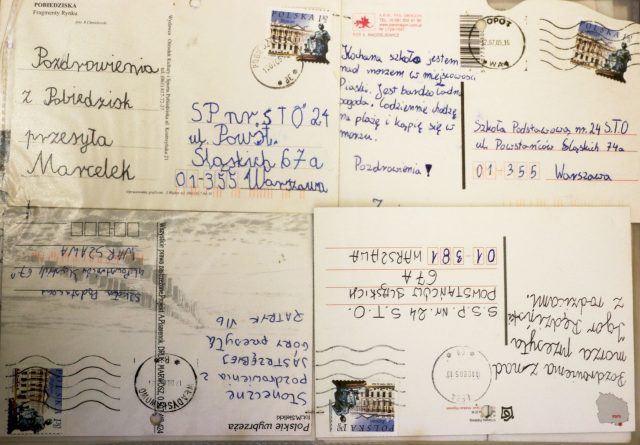 POBIEDZISKA
Fragmenty Rynku
Pozdrowienia
z Pobiedzisk
przesyła
Marcelek
POLSKA
SP. nr. "STO" 24
ul. Powst.
Śląskich 67a
01-355 Warszawa
Kochana szkoło jestem
nad morzem w miejscowości
Piaski. Jest bardzo ładna
pogoda. Codziennie chodzę
na plażę i kąpię się w
morzu.
Pozdrowienia!
SOPOT
Szkoła Podstawowa nr. 24 S.T.O
ul. Powstańców Śląskich 74a
01-355 Warszawa
Polskie wybrzeża
Słoneczne
pozdrowienia z
JASTRZĘBIEJ
GÓRY przesyła
PATRYK VIb
Szkoła Podstawowa
WARSZAWA
WŁADYSŁAWOWO
POLSKA
Pozdrowienia z nad
morza przesyła
Igor Rędzyński
z rodzicami.
S.S.P. NR. 24 S.T.O.
POWSTAŃCÓW ŚLĄSKICH
67A
01-381 WARSZAWA
ŁEBA
POLSKA